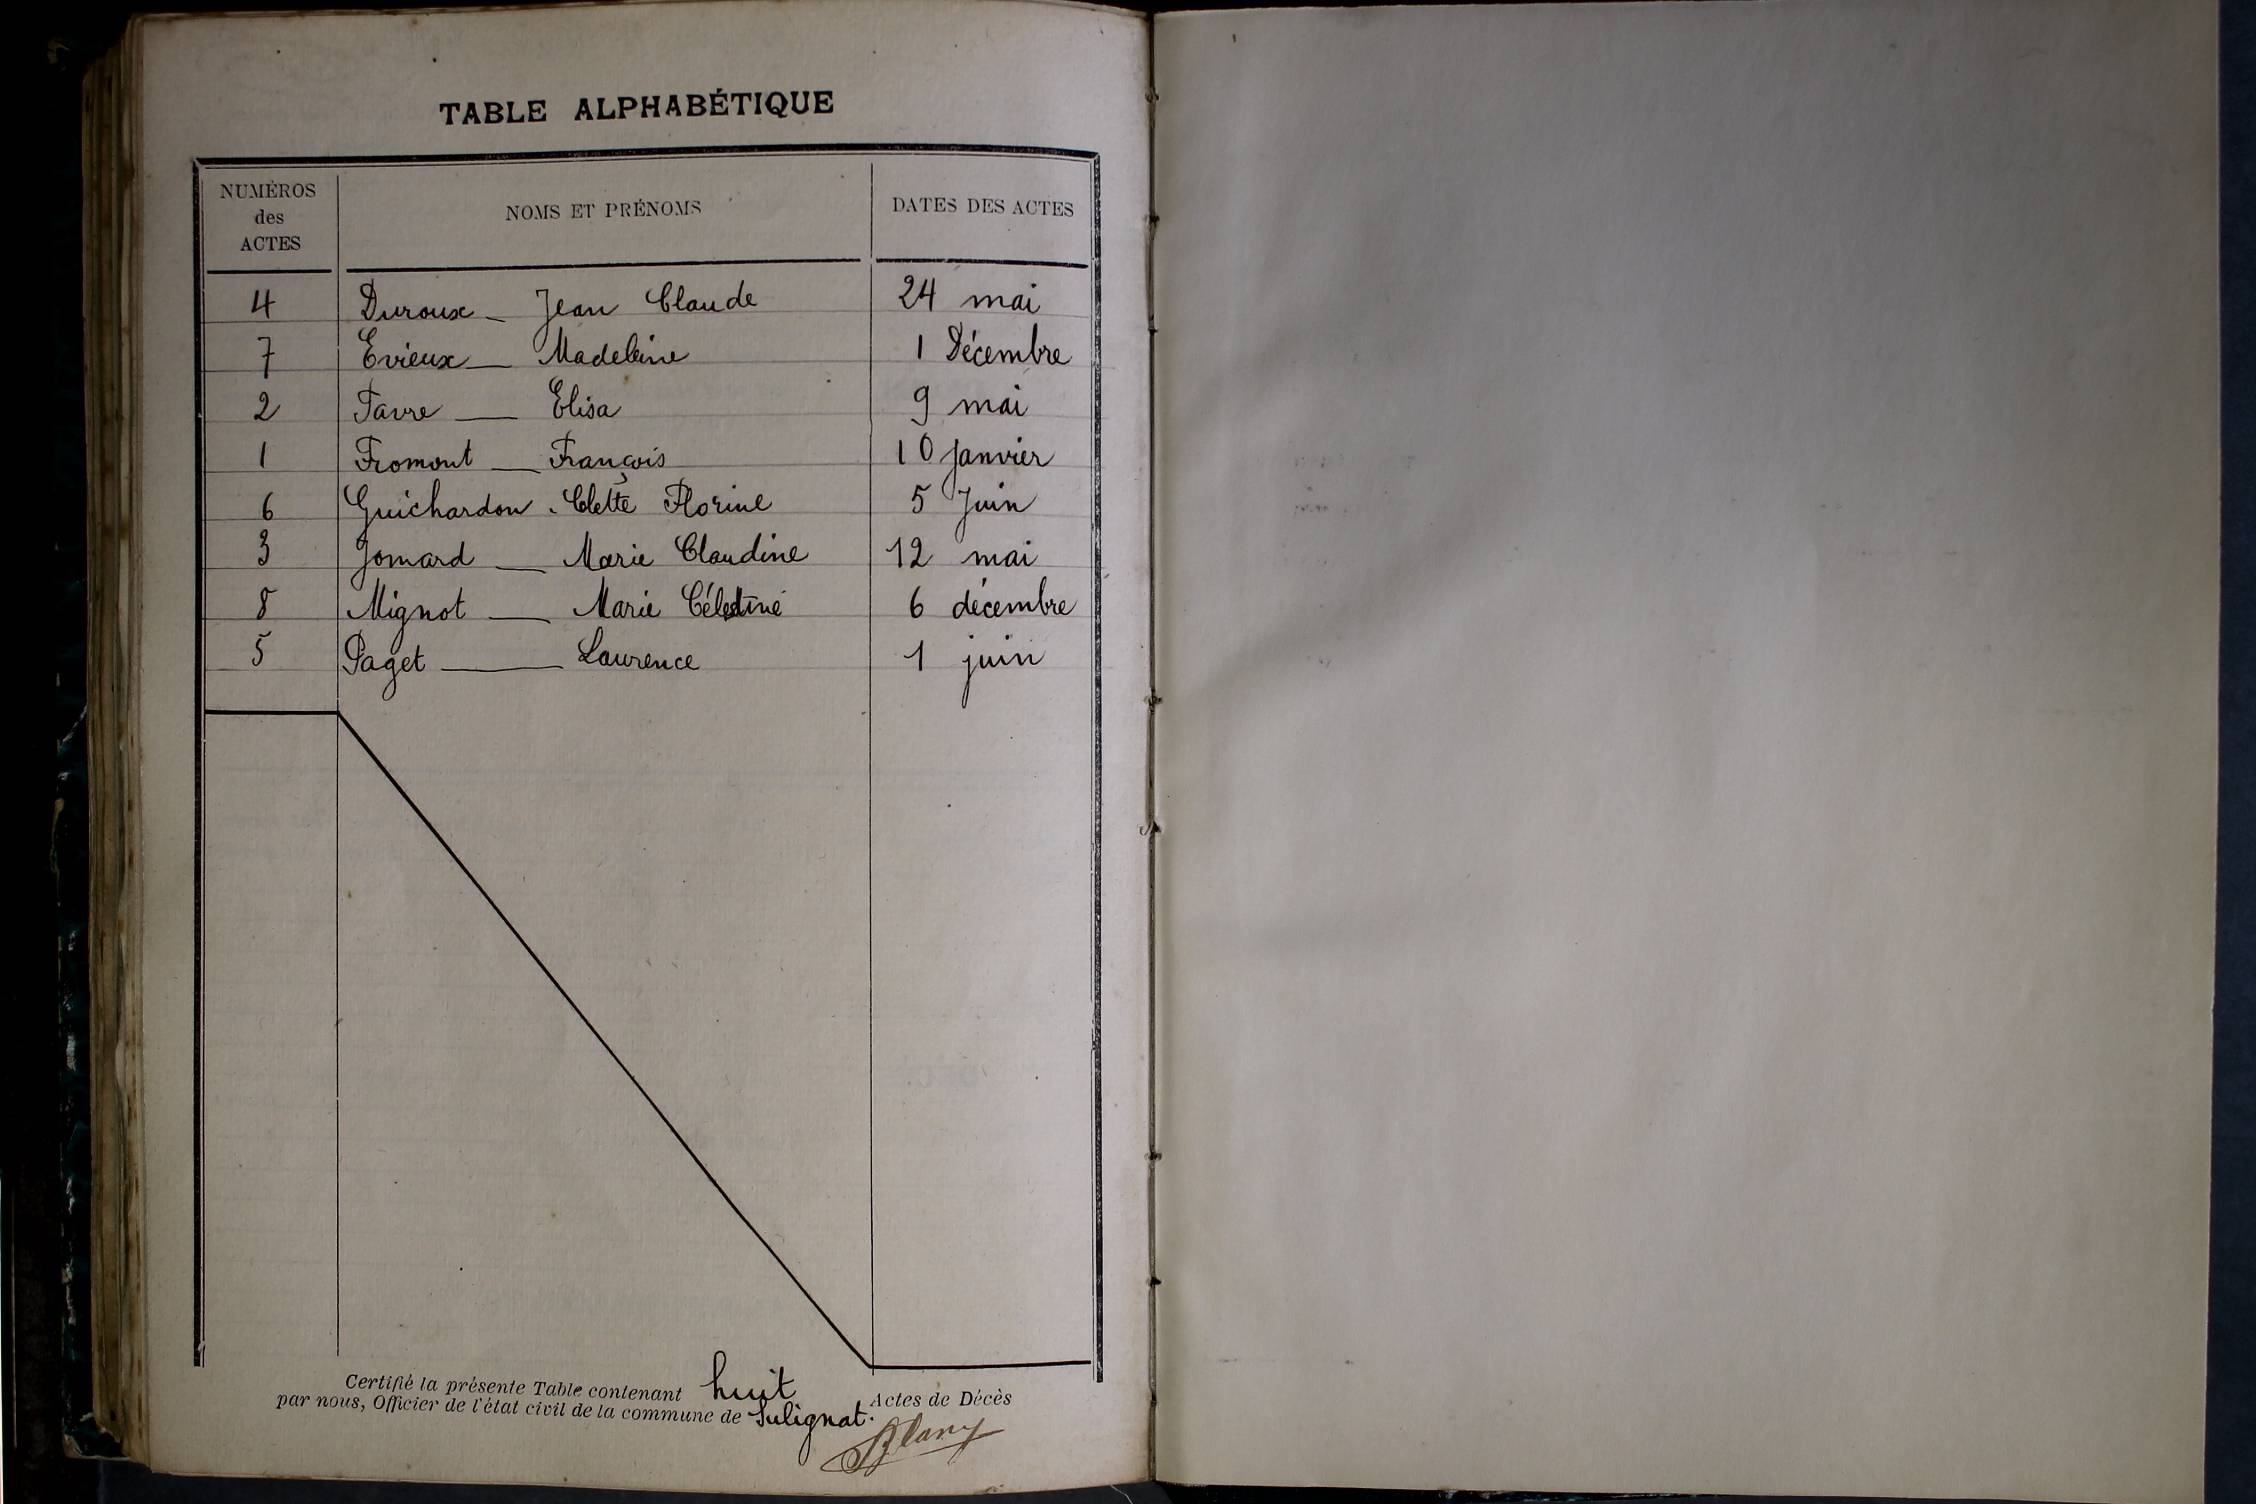 TABLE ALPHABÉTIQUE
NUMÉROS des ACTES NOMS ET PRÉNOMS DATES DES ACTES
4 Duroux - Jean Claude 24 mai
7 Evieux - Madeleine 1 Décembre
2 Favre - Elisa 9 mai
1 Fromont - François 10 janvier
6 Guichardon - Clette Florine 5 Juin
3 Jomard - Marie Claudine 12 mai
8 Mignot - Marie Célestine 6 décembre
5 Paget - Laurence 1 juin
Certifié la présente Table contenant huit Actes de Décès
par nous, Officier de l'état civil de la commune de Sulignat.